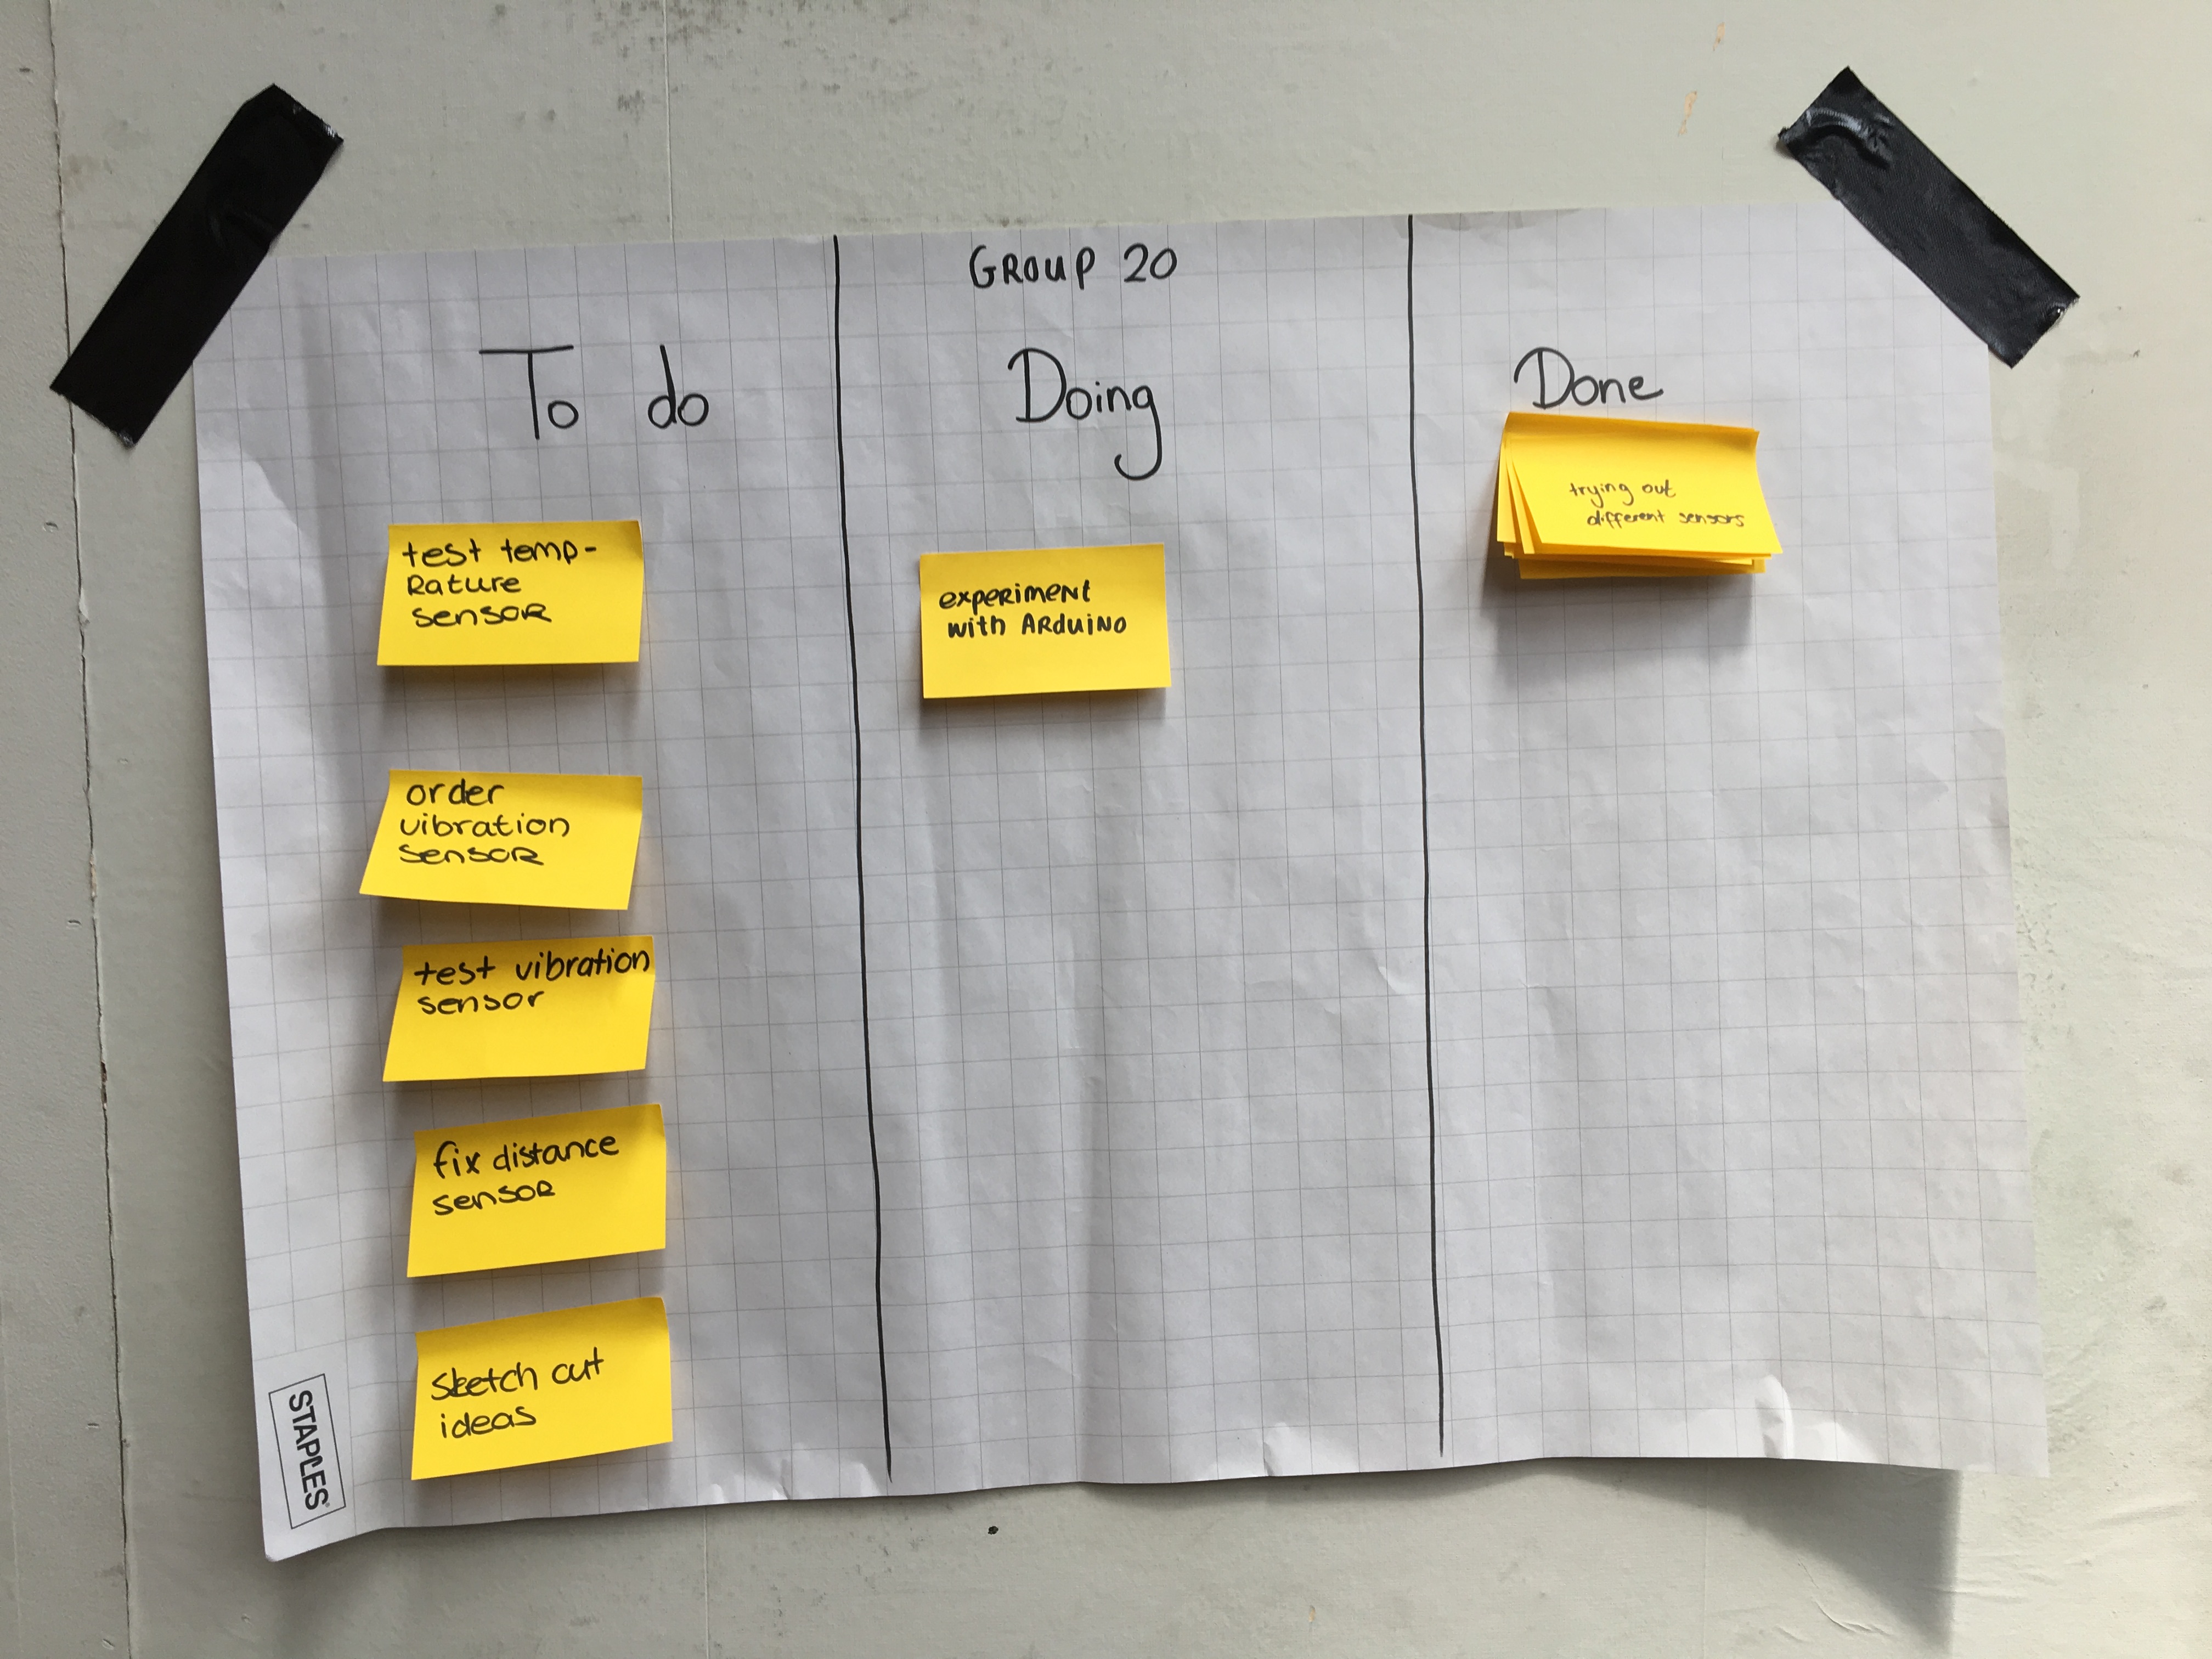 GROUP 20
To do
test temp-
Rature
sensoR
order
vibration
sensoR
test vibration
sensor
fix distance
sensoR
sketch out
ideas
Doing
experiment
with ARduiNo
Done
trying out
different sensors
STAPLES